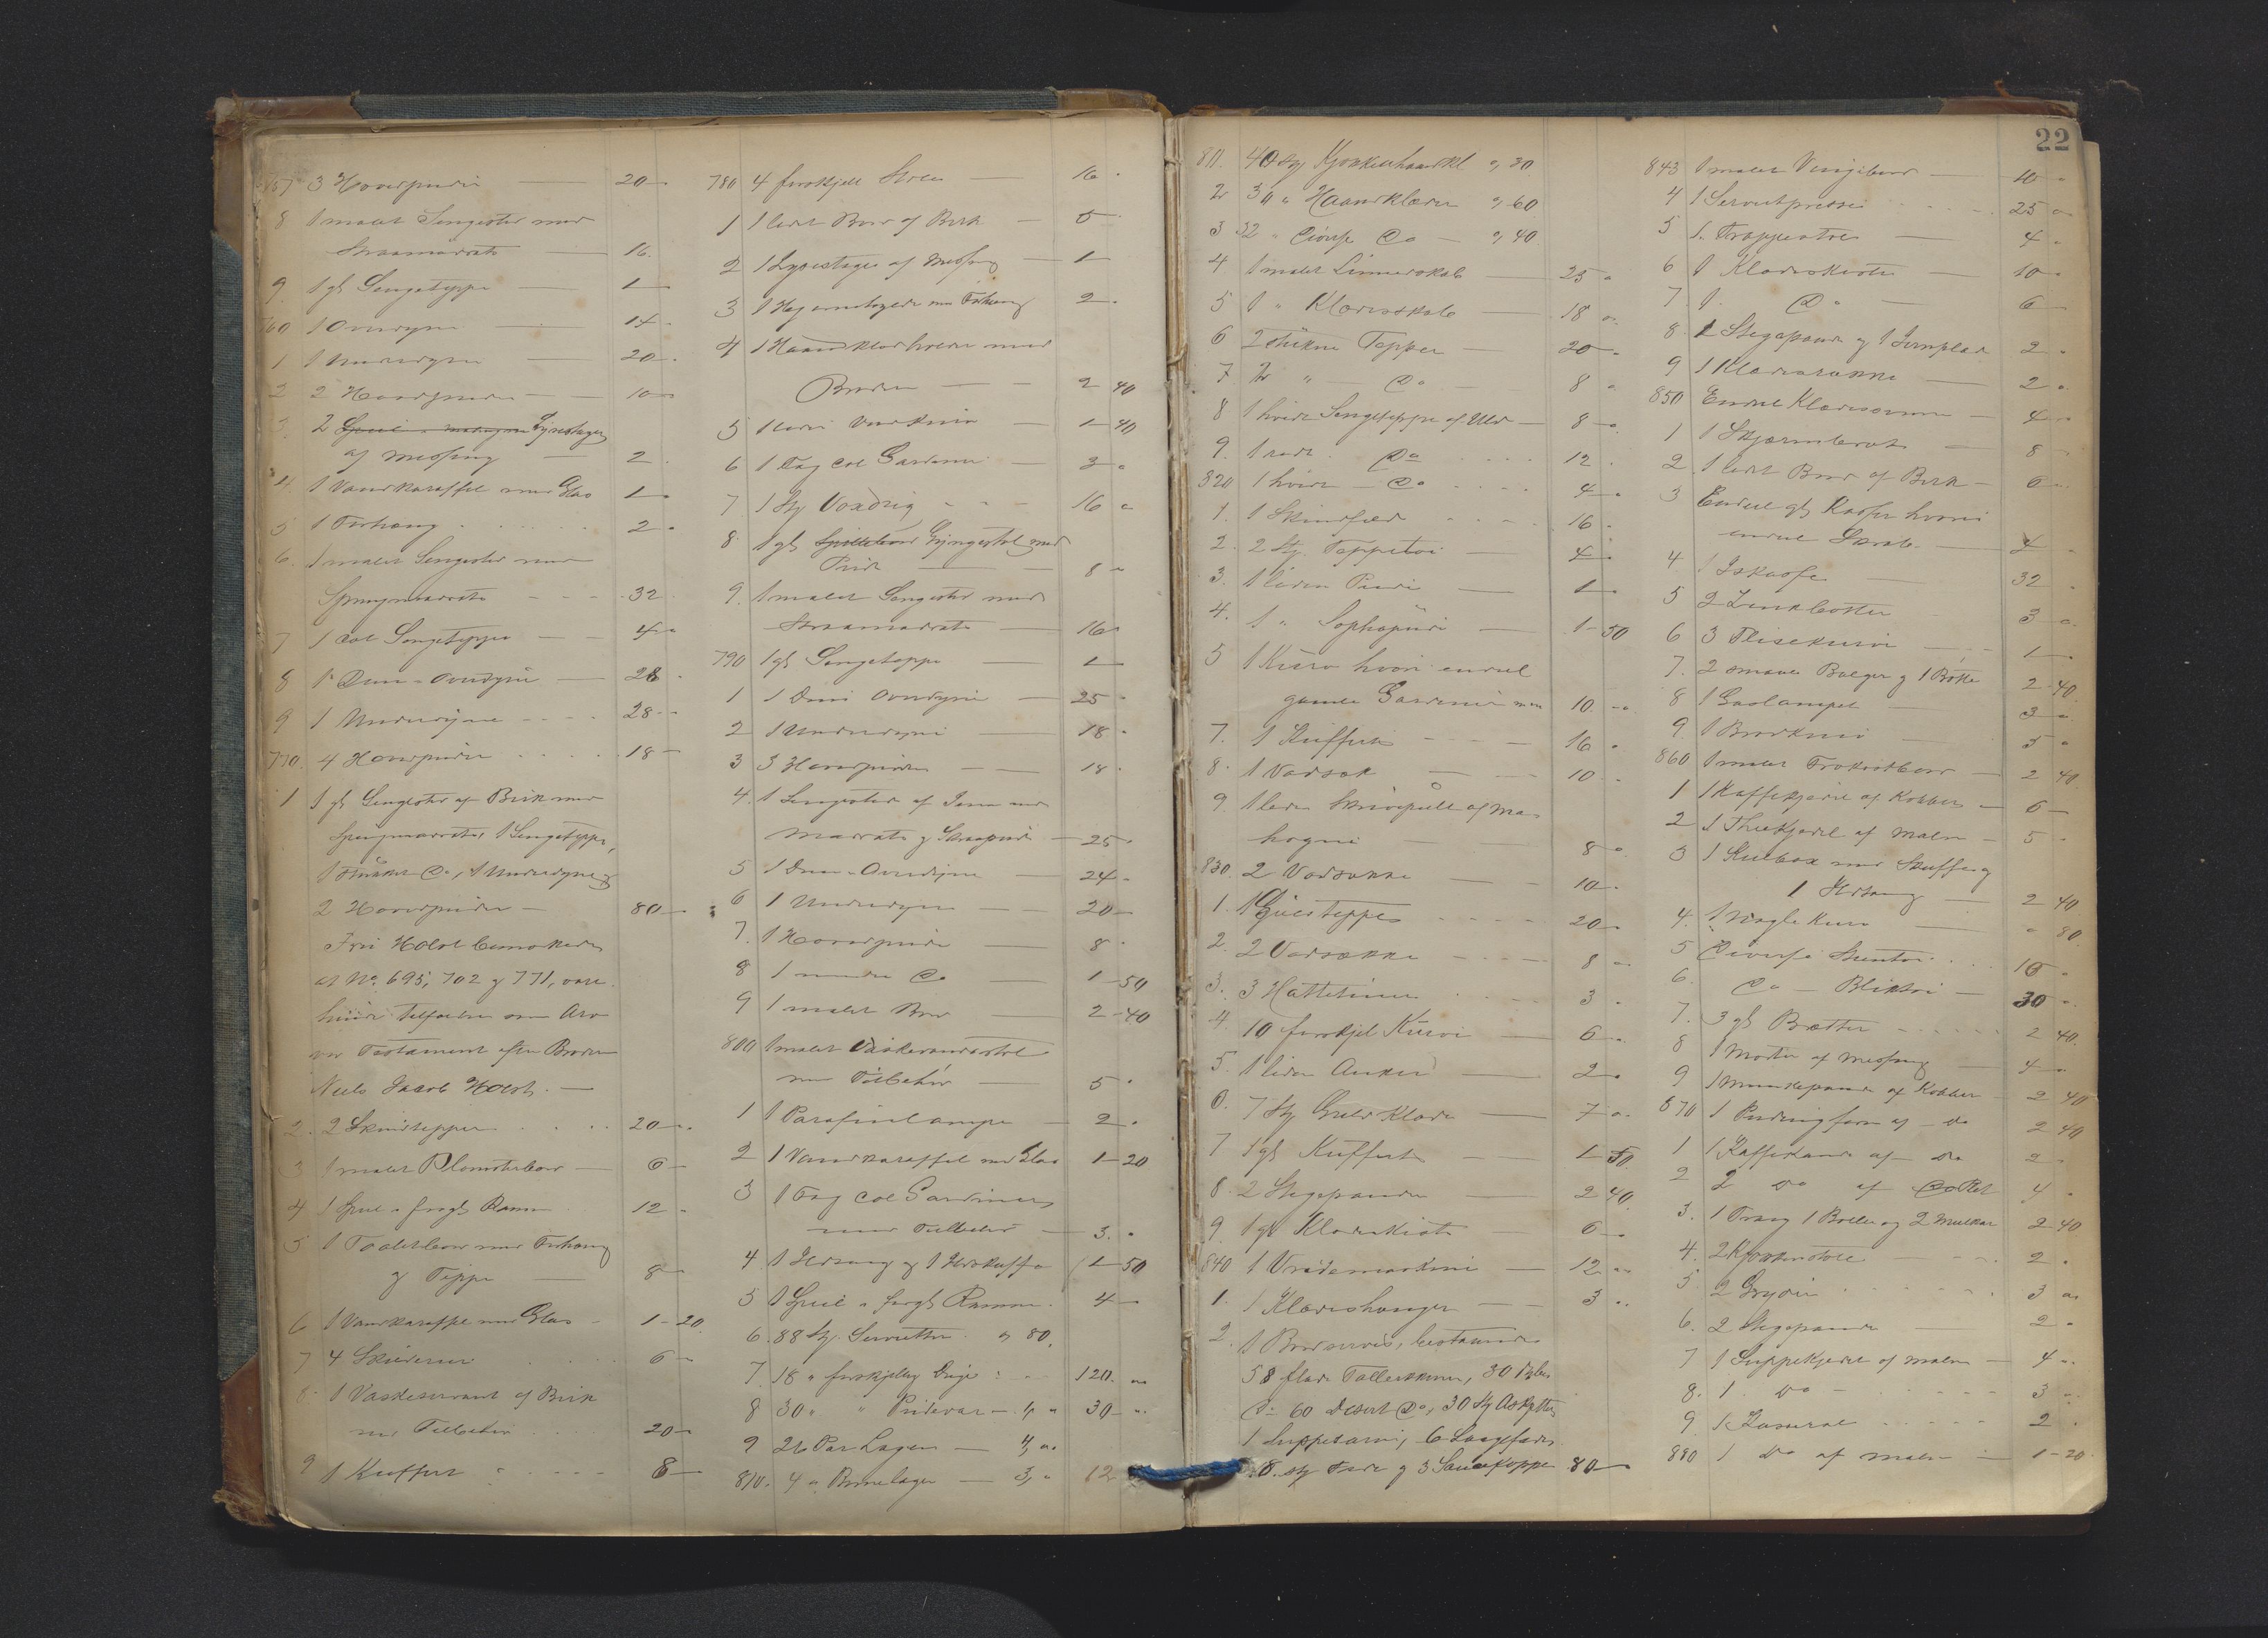 757 3 Hovedpuder — 20 -
8 1 malet Sengested med
Straamadrats — 16.
9. 1 gl Sengeteppe — 1 -
760 1 Overdyne — 14 -
1 1 Underdyne — 20 -
2 2 Hovedpuder — 10 -
3. 2 Lysestager
af Messing — 2.
4 1 Vandkaraffel med Glas 1 -
5 1 Forhæng 2 -
6. 1 malet Sengested med
Springmadrats - - - 32.
7 1 col Sengeteppe — 4 -
8 1 Dun-Overdyne — 28 -
9 1 Underdyne - - - 28 -
770. 4 Hovedpuder 18 -
1 1 gl Sengested af Birk med
Springmadrats, 1 Sengeteppe,
1 stukket Do, 1 Underdyne &
2 Hovedpuder — 80 -
Fru Holst bemærkede
at No. 695, 702 & 771, vare
hende Tilfaldne som Arv
ved Testament efter Broderen
Niels Jacob Holst. —
2. 2 Skindtepper 20 -
3 1 malet Blomsterbord — 6 -
4 1 Speil i forgl Ramme 12 -
5 1 Toiletbord med Forhæng
& Teppe — 8 -
6 1 Vandkaraffel med Glas - 1 - 20
7 4 Skilderier 6 -
8. 1 Vaskeservant af Birk
med Tilbehør 20 -
9 1 Kuffert - - - 8 -
780 4 forskjell Stole — 16 -
1 1 lidet Bord af Birk — 5 -
2 1 Lysestage af Messing — 1 -
3 1 Hjørnehylde med Forhæng 2 -
4 1 Haandklædholder med
Broderi — 2 40
5 1 liden Vaskeri — 1 - 40
6 1 Fag col Gardiner — 3 -
7 1 Stk Voxdug - - - 16 -
8 1 gl Gyngestol med
Pude — 8 -
9. 1 malet Sengested med
Straamadrats — 16 -
790 1 gl Sengeteppe — 1 -
1 1 Dun Overdyne — 25 -
2 1 Underdyne — 18 -
3 3 Hovedpuder — 18 -
4. 1 Sengested af Jern med
Madrats & Straapude — 25 -
5 1 Dun-Overdyne — 24 -
6 1 Underdyne — 20 -
7. 1 Hovedpude — 8 -
8 1 mindre Do — 1 - 50
9 1 malet Bord — 2 - 40
800 1 malet Vaskevandsstol
med Tilbehør — 5 -
1 1 Parafinlampe — 2 -
2 1 Vandkaraffel med Glas 1 - 20
3 1 Fag col Gardiner
med Tilbehør — 3. -
4 1 Ildtang & 1 Ildskuffe 1 - 50
5 1 Speil i forgl Ramme. 4 -
6. 88 Stk. Servietter. a 80.
7. 18 " forskjellig Duge 120. -
8 30 " " Pudevar — 30 -
9 26 Par Lagen — 4, -
810. 4 " Børnelagen — 3, - 12
22
811. 40 Stk Kjøkkenhaandkl a 30
2 30 " Haandklæder a 60
3 32 " Diverse Do — a 40
4 1 malet Linnedskab — 25 -
5 1 " Klædesskab — 18 -
6 2 stukne Tepper — 20 -
7. 2 " — Do — 8 -
8 1 hvidt Sengeteppe af Uld — 8 -
9. 1 rødt Do 12 -
820 1 hvidt — Do 4 -
1. 1 Skindfeld 16 -
2. 2 Stk. Teppetøi — 4 -
3. 1 liden Pude — 1 -
4. 1 " Sophapude — 1 - 50
5 1 Kurv hvori endel
gamle Gardiner m.m 10. -
7. 1 Kuffert - - - 16 -
8. 1 Vadsæk — 10 -
9. 1 liden Skrivepult af Ma-
hogni — 8 -
830. 2 Vadsække — 10 -
1. 1 Gulvteppe 20 -
2. 2 Vadsække 8 -
3. 3 Hattetiner 3 -
4. 10 forskjel Kurve — 6 -
5. 1 liden Anker — 2 -
6. 7 Stk Gulvklæder — 7 -
7 1 gl Kuffert — 1 - 50
8. 2 Stegepander — 2 40
9. 1 gl Klædeskiste — 6 -
840 1 Vridemaskine — 12 -
1. 1 Klædeshænger — 3 -
2. 1 Bordservis, bestaaende
58 flade Tallerkener, 30 dybe
Do 60 Desert Do, 30 Stk Asietter
1 Suppeterrin, 6 Langefade
8. stk Fade & 3 Saucekopper 80 -
843 1 malet Vingebord — 10 -
4 1 Servietpresse 25 -
5 1. Trappestol — 4 -
6 1 Klædeskiste — 10 -
7. 1. Do — 6 -
8. 1 Stegepande & 1 Jernplade 2 -
9 1 Klæderække — 2 -
850 Endel Klædesnorer — 4 -
1 1 Skjærmbræt — 8 -
2 1 lidet Bord af Birk — 6 -
3 Endel gl Kasser hvori
endel Skrab — 4 -
4 1 Iskasse — 32 -
5 2 Zinkbøtter 3 -
6 3 Flisekurve 1 -
7. 2 smaae Balger & 1 Bøtte 2 - 40
8 1 Gaslampe — 3 -
9. 1 Brødkniv 5 -
860 1 malet Frokostbord — 2 40
1 1 Kaffekjedel af Kobber — 6 -
2 1 Theekjedel af Malm — 5 -
3 1 Kulbox med Skuffe &
1 Ildtang — 2 40
4. 1 Nøglekurv — - 80
5 Diverse Stentøi 10 -
6. Do — Bliktøi — 30 -
7. 3 gl Bøtter 2 40.
8 1 Morter af Messing 4 -
9 1 Munkepande af Kobber 2 40
870 1 Pudingform af — do 2 40
1 1 Kaffekande af — do 2 -
2 2 do af Do 4 -
3. 1 Traug 1 Bolle og 2 2 40
4. 2 Kjøkkenstole 2 -
5 2 Gryder 3 -
6. 2 Stegepande — 2 -
7 1 Suppekjedel af Malm — 4 -
8. 1 do — 3 -
9. 1 Kasserol 2 -
880 1 do af Malm — 1 - 20